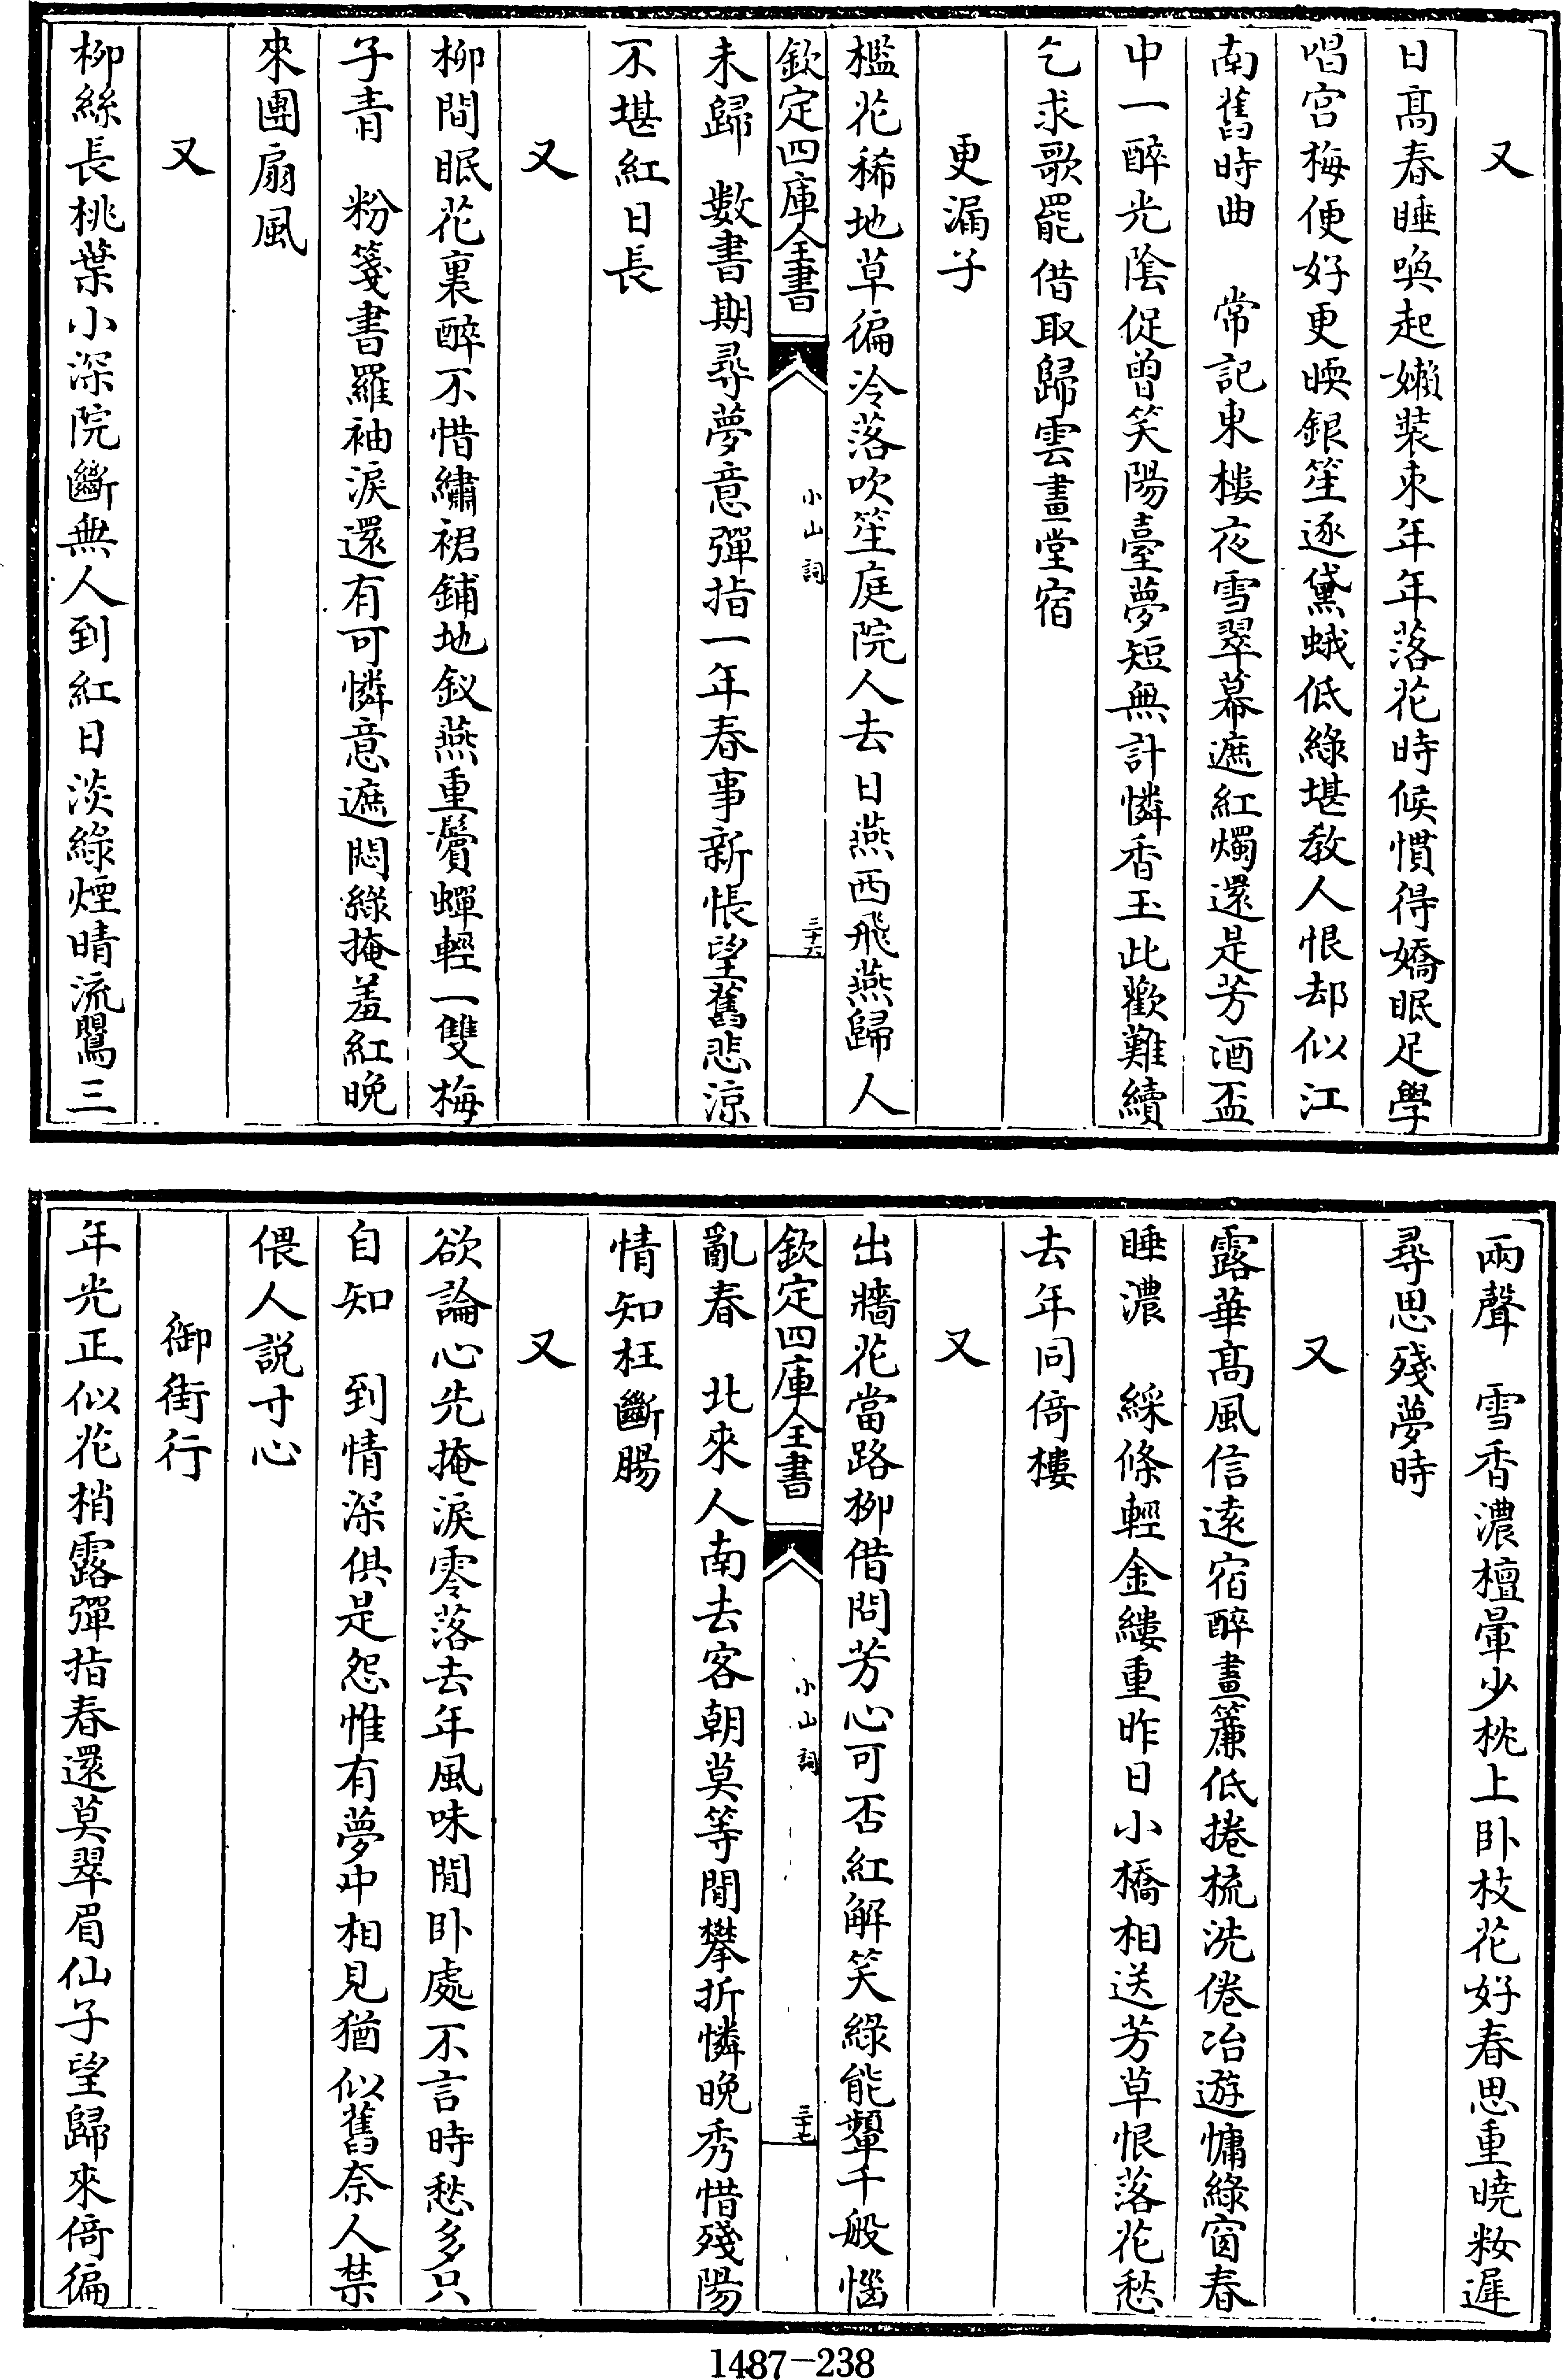 又
日髙春睡喚起嬾裝束年年落花時候慣得嬌眠足學
唱宫梅便好更暎銀笙逐黛蛾低綠堪教人恨却似江
南舊時曲　常記東樓夜雪翠幕遮紅燭還是芳酒盃
中一醉光隂促曾笑陽臺夢短無計憐香玉此歡難續
乞求歌罷借取歸雲畫堂宿
更漏子
檻花稀地草徧冷落吹笙庭院人去日燕西飛燕歸人
欽定四庫全書
小山詞
三十六
未歸　數書期尋夢意彈指一年春事新悵望舊悲涼
不堪紅日長
又
柳間眠花裏醉不惜繡裙鋪地釵燕重鬢蟬輕一雙梅
子青　粉箋書羅袖淚還有可憐意遮悶綠掩羞紅晚
來團扇風
又
柳絲長桃葉小深院斷無人到紅日淡綠煙晴流鶯三
兩聲　雪香濃檀暈少枕上卧枝花好春思重曉粧遲
尋思殘夢時
又
露華髙風信遠宿醉畫簾低捲梳洗倦冶遊慵綠窗春
睡濃　綵條輕金縷重昨日小橋相送芳草恨落花愁
去年同倚樓
又
出牆花當路柳借問芳心可否紅解笑綠能顰千般惱
欽定四庫全書
小山詞
三十七
亂春　北來人南去客朝莫等閒攀折憐晚秀惜殘陽
情知枉斷腸
又
欲論心先掩淚零落去年風味閒卧處不言時愁多只
自知　到情深俱是怨惟有夢中相見猶似舊奈人禁
偎人説寸心
御街行
年光正似花梢露彈指春還莫翠眉仙子望歸來倚徧
1487—238